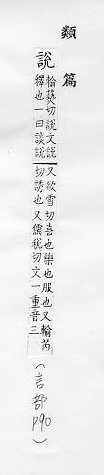 類篇
說
輸爇切說文說
釋也一曰談說
又欲雪切喜也樂也服也又輸芮
切誘也又儒稅切文一重音三
(言部 p90)